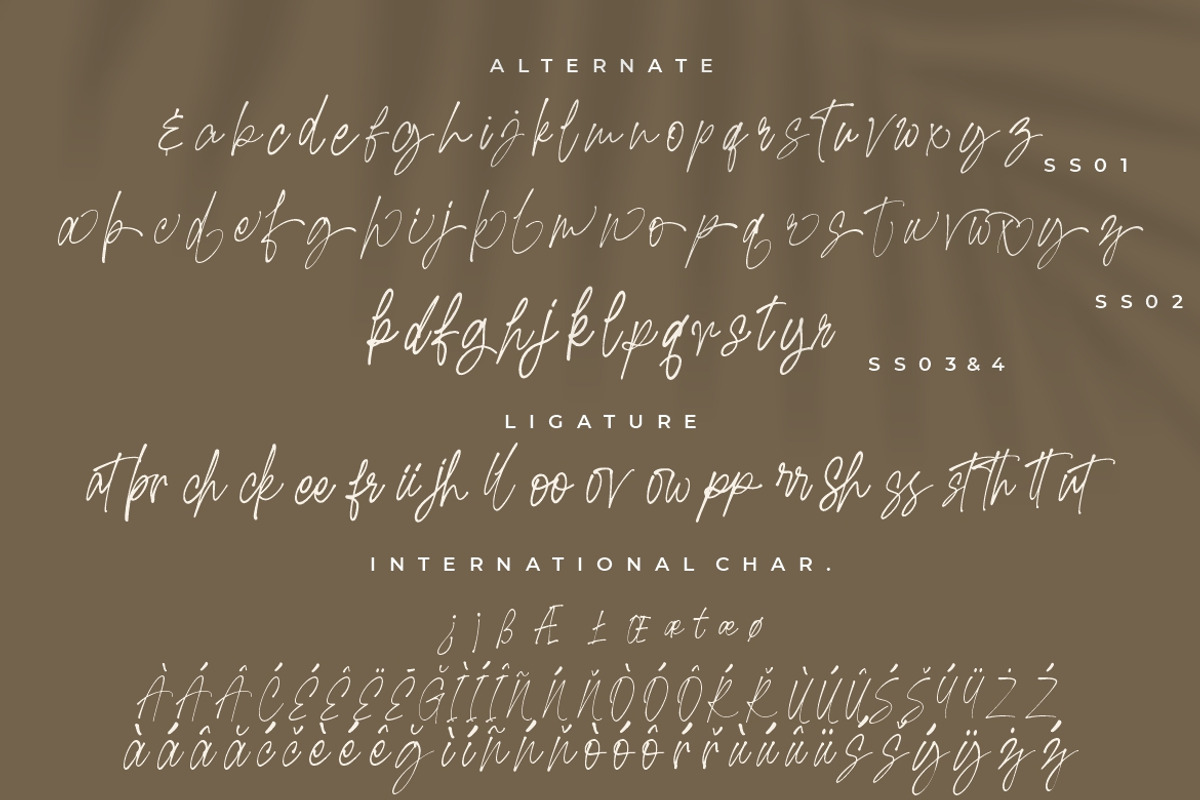 ALTERNATE
& a b c d e f g h i j k l m n o p q r s t u v w x y z
SS01
a b c d e f g h i j k l m n o p q r s t u v w x y z
SS02
b d f g h j k l p q r s t y r
SS03&4
LIGATURE
at br ch ck ee fr ii jh ll oo ov ow pp rr Sh ss st th tt ut
INTERNATIONAL CHAR.
¿ ¡ ß Æ Ł Œ æ t æ ø
À Á Â Ć É Ê Ë Ē Ğ Ì Í Î Ñ Ń Ň Ò Ó Ô Ŕ Ř Ù Ú Û Ś Š Ý Ÿ Ż Ź
à á â ă ć č è é ê ğ ì í ñ ń ň ò ó ô ŕ ř ù ú û ü ś š ý ÿ ż ź